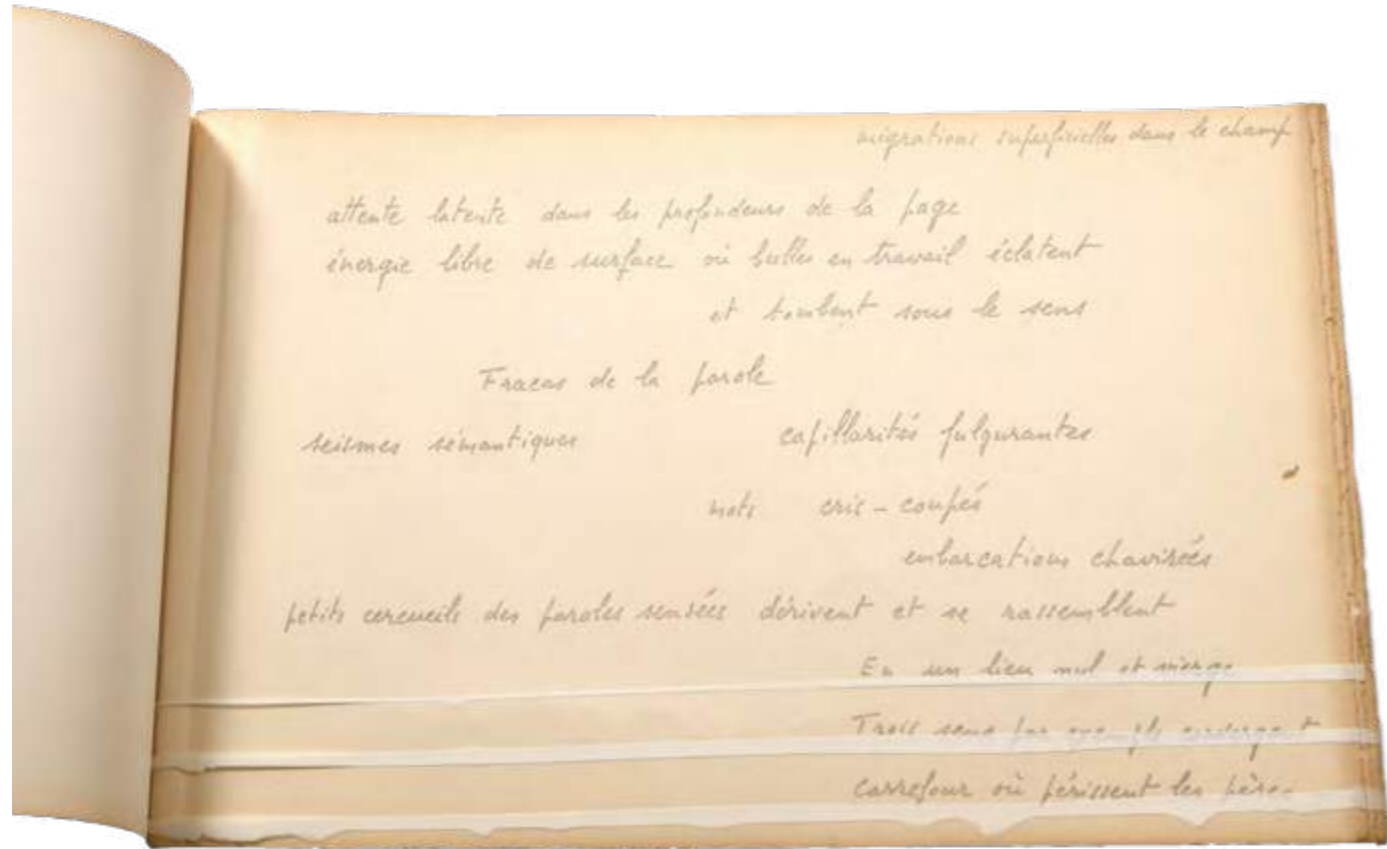 migrations superficielles dans le champ
attente latente dans les profondeurs de la page
énergie libre de surface où bulles en travail éclatent
et tombent sous le sens
Fracas de la parole
seismes sémantiques capillarités fulgurantes
mots cris - coupés
embarcations chavirées
petits cercueils des paroles sensées dérivent et se rassemblent
En un lieu nul et vierge
Trois sens par exemple convergent
carrefour où périssent les pères